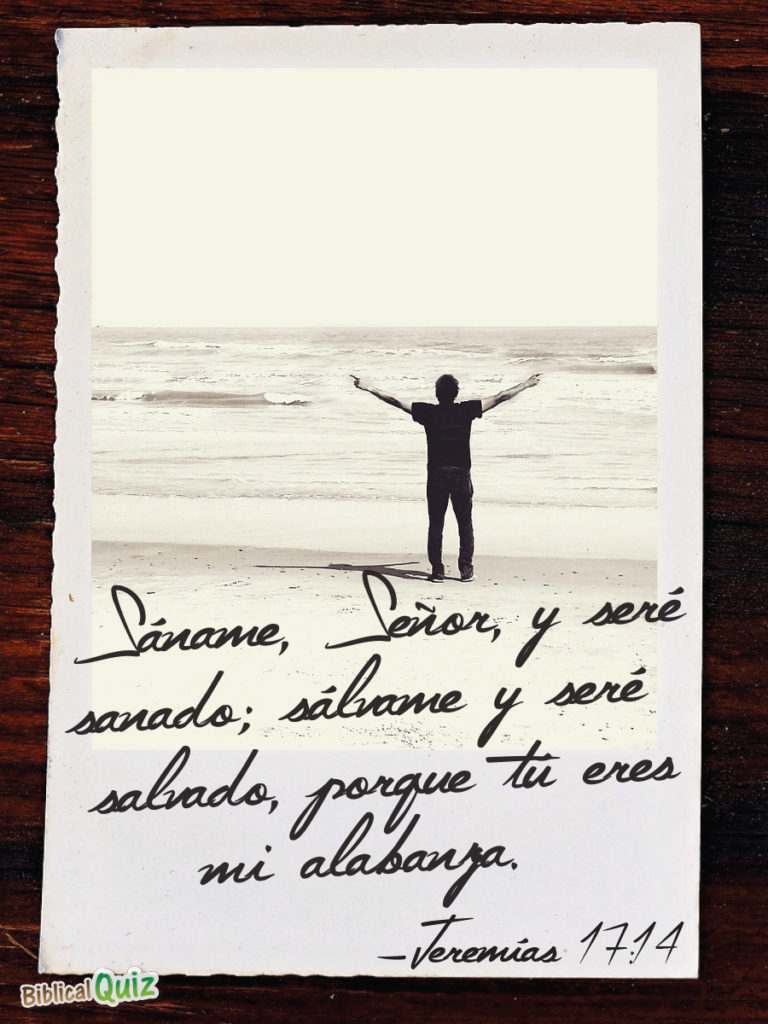 Sáname, Señor, y seré
sanado; sálvame y seré
salvado, porque tú eres
mi alabanza.
-Jeremías 17:14
Biblical Quiz